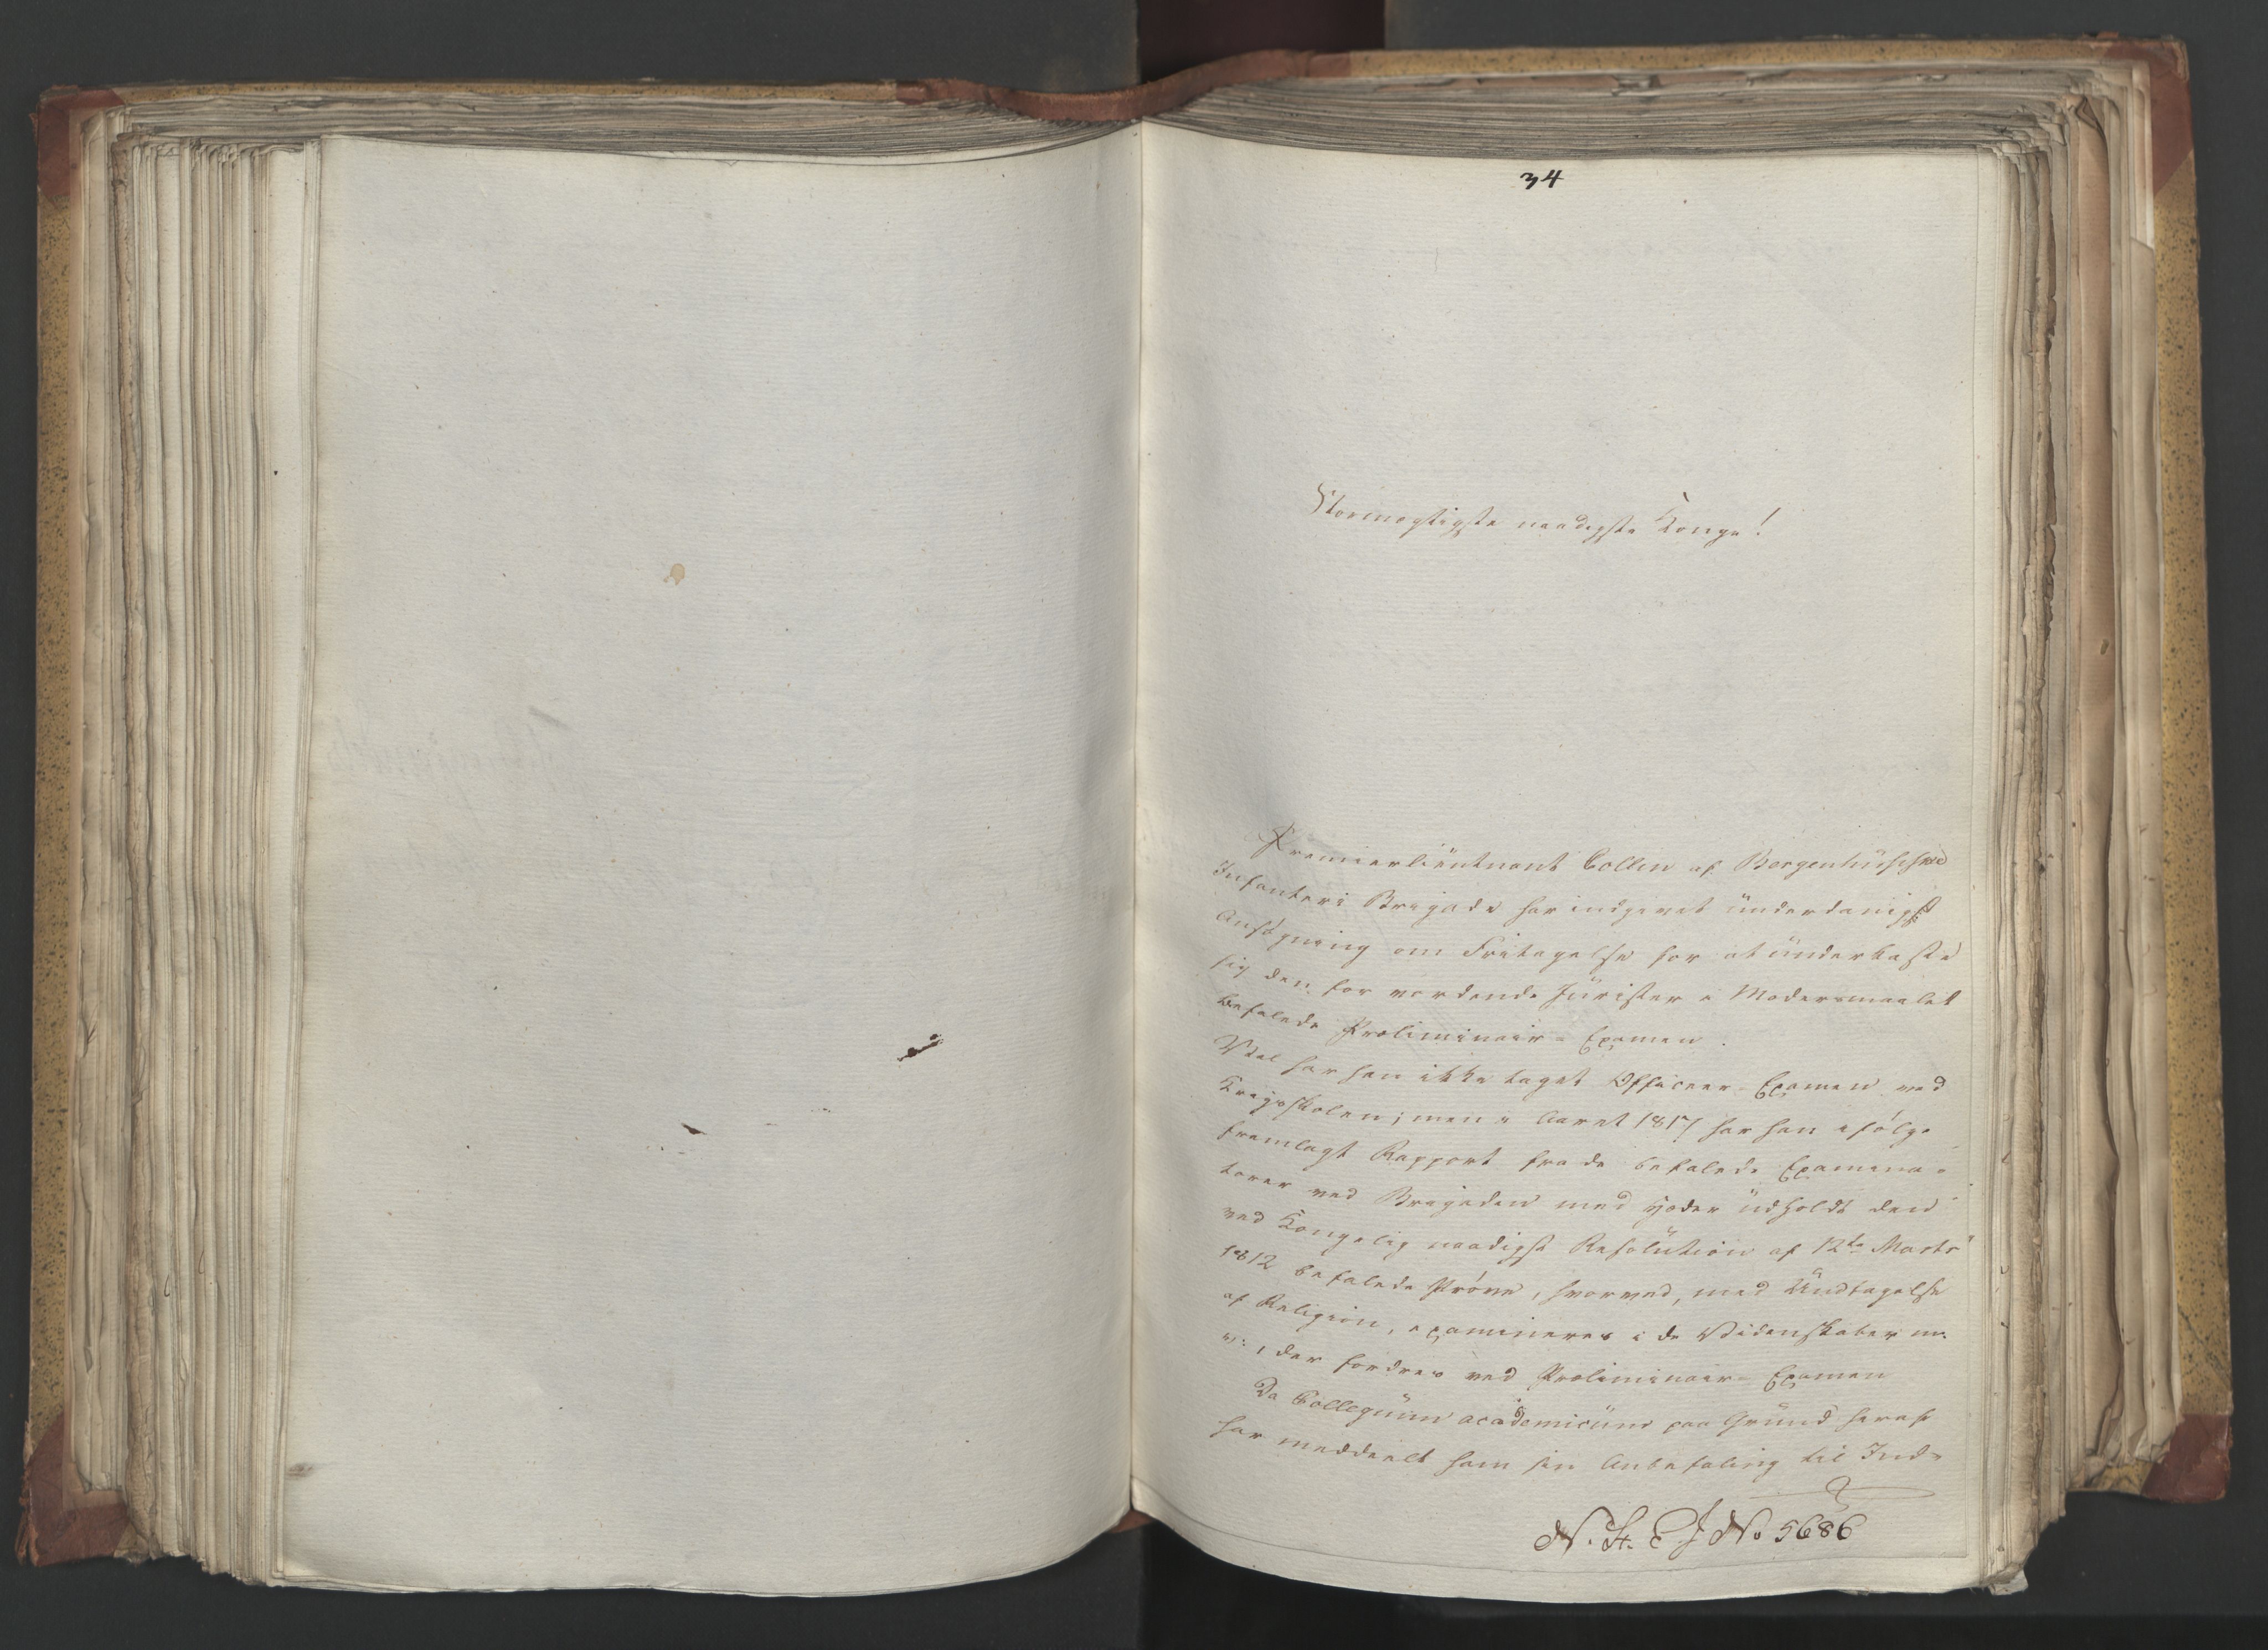 34
Stormægtigste naadigste Konge!
Premierlieutnant Collin af Bergenhusiske
Infanteri Brigade har indgivet underdanigst
Ansøgning om Fritagelse for at underkaste
sig den for vordende Jurister i Modersmaalet
befalede Præliminair-Examen.
Vel har han ikke taget Officeer-Examen ved
Krigsskolen; men i Aaret 1817 har han ifølge
fremlagt Rapport fra de befalede Examina-
torer ved Brigaden med Hæder udholdt den
ved Kongelig naadigst Resolution af 12te Marts
1812 befalede Prøve, hvorved, med Undtagelse
af Religion, examineres i de Videnskaber m.
v., der fordres ved Præliminair-Examen
Da Collegium academicum paa Grund heraf
har meddeelt ham sin Anbefaling til Ind-
5686